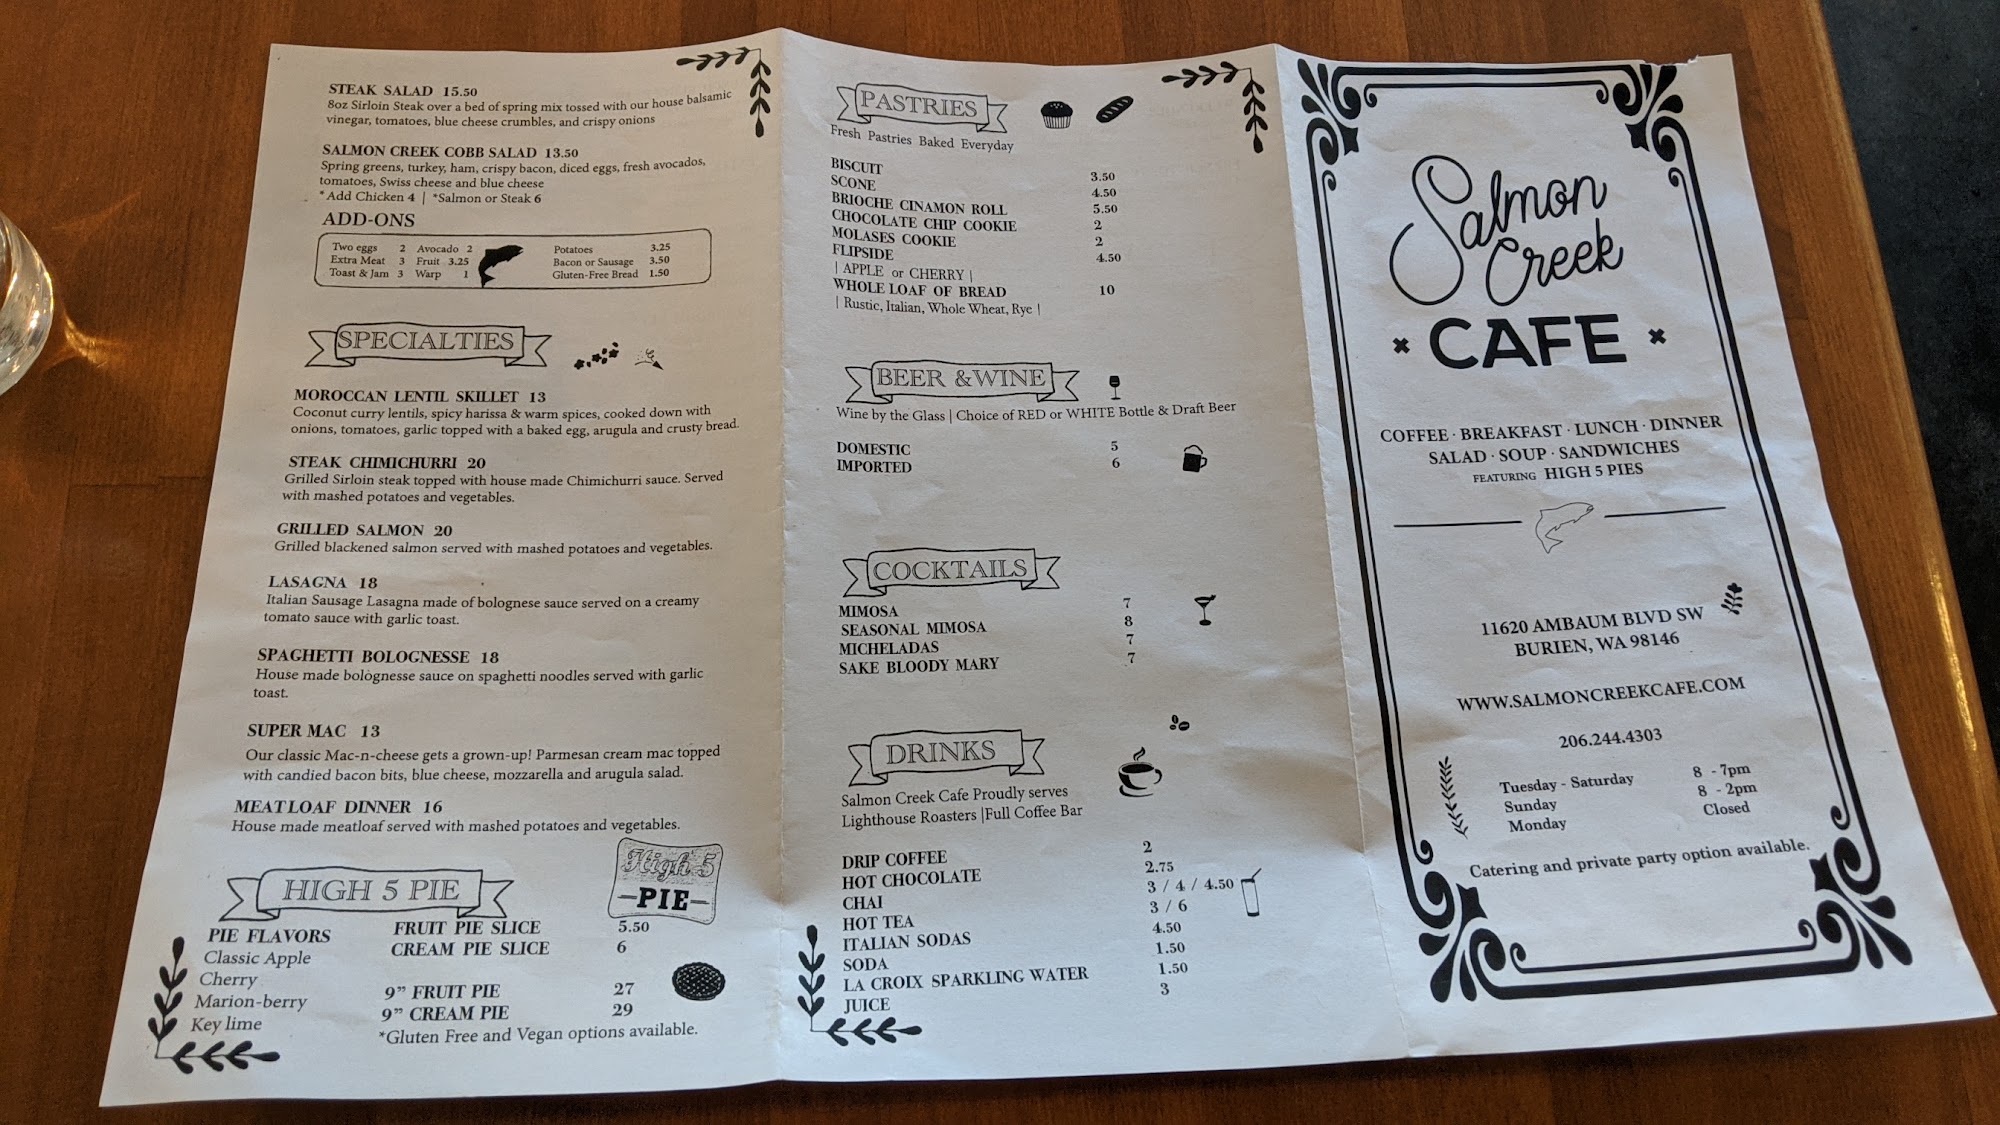 STEAK SALAD 15.50
8oz Sirloin Steak over a bed of spring mix tossed with our house balsamic
vinegar, tomatoes, blue cheese crumbles, and crispy onions
SALMON CREEK COBB SALAD 13.50
Spring greens, turkey, ham, crispy bacon, diced eggs, fresh avocados,
tomatoes, Swiss cheese and blue cheese
* Add Chicken 4 | *Salmon or Steak 6
ADD-ONS
Two eggs 2 Avocado 2 Potatoes 3.25
Extra Meat 3 Fruit 3.25 Bacon or Sausage 3.50
Toast & Jam 3 Warp 1 Gluten-Free Bread 1.50
SPECIALTIES
MOROCCAN LENTIL SKILLET 13
Coconut curry lentils, spicy harissa & warm spices, cooked down with
onions, tomatoes, garlic topped with a baked egg, arugula and crusty bread.
STEAK CHIMICHURRI 20
Grilled Sirloin steak topped with house made Chimichurri sauce. Served
with mashed potatoes and vegetables.
GRILLED SALMON 20
Grilled blackened salmon served with mashed potatoes and vegetables.
LASAGNA 18
Italian Sausage Lasagna made of bolognese sauce served on a creamy
tomato sauce with garlic toast.
SPAGHETTI BOLOGNESSE 18
House made bolognesse sauce on spaghetti noodles served with garlic
toast.
SUPER MAC 13
Our classic Mac-n-cheese gets a grown-up! Parmesan cream mac topped
with candied bacon bits, blue cheese, mozzarella and arugula salad.
MEATLOAF DINNER 16
House made meatloaf served with mashed potatoes and vegetables.
HIGH 5 PIE
High 5
-PIE-
PIE FLAVORS
Classic Apple
Cherry
Marion-berry
Key lime
FRUIT PIE SLICE 5.50
CREAM PIE SLICE 6
9" FRUIT PIE 27
9" CREAM PIE 29
*Gluten Free and Vegan options available.
PASTRIES
Fresh Pastries Baked Everyday
BISCUIT 3.50
SCONE 4.50
BRIOCHE CINAMON ROLL 5.50
CHOCOLATE CHIP COOKIE 2
MOLASES COOKIE 2
FLIPSIDE 4.50
| APPLE or CHERRY |
WHOLE LOAF OF BREAD 10
| Rustic, Italian, Whole Wheat, Rye |
BEER & WINE
Wine by the Glass | Choice of RED or WHITE Bottle & Draft Beer
DOMESTIC 5
IMPORTED 6
COCKTAILS
MIMOSA 7
SEASONAL MIMOSA 8
MICHELADAS 7
SAKE BLOODY MARY 7
DRINKS
Salmon Creek Cafe Proudly serves
Lighthouse Roasters |Full Coffee Bar
DRIP COFFEE 2
HOT CHOCOLATE 2.75
CHAI 3 / 4 / 4.50
HOT TEA 3 / 6
ITALIAN SODAS 4.50
SODA 1.50
LA CROIX SPARKLING WATER 1.50
JUICE 3
Salmon
Creek
× CAFE ×
COFFEE · BREAKFAST · LUNCH · DINNER
SALAD · SOUP · SANDWICHES
FEATURING HIGH 5 PIES
11620 AMBAUM BLVD SW
BURIEN, WA 98146
WWW.SALMONCREEKCAFE.COM
206.244.4303
Tuesday - Saturday 8 - 7pm
Sunday 8 - 2pm
Monday Closed
Catering and private party option available.